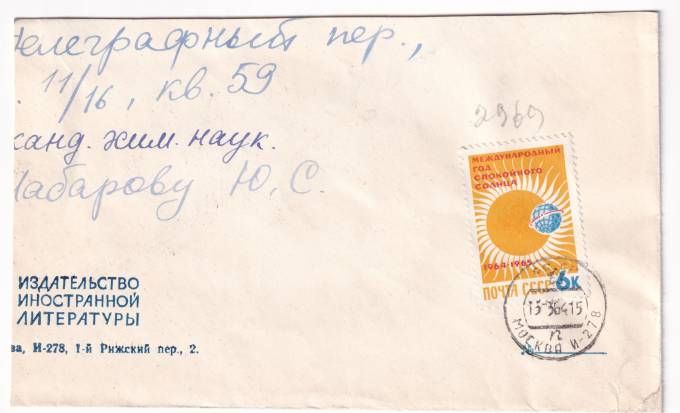 Телеграфный пер.,
. 11/16, кв. 59
канд. хим. наук.
Шабарову Ю. С.
2969
МЕЖДУНАРОДНЫЙ
ГОД
СПОКОЙНОГО
СОЛНЦА
1964-1965
ПОЧТА СССР 6к
МОСКВА И-278
ИЗДАТЕЛЬСТВО
ИНОСТРАННОЙ
ЛИТЕРАТУРЫ
ва, И-278, 1-й Рижский пер., 2.